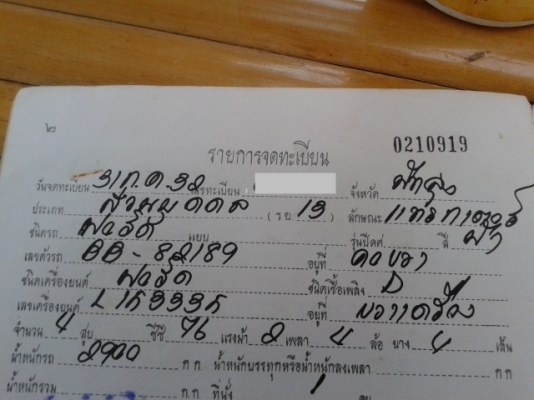 ๒
รายการจดทะเบียน 0210919
วันจดทะเบียน 31 ก.ค. 32 เลขทะเบียน จังหวัด พัทลุง
ประเภท ส่วนบุคคล (รย 13) ลักษณะ แทรกเตอร์
ชนิดรถ ฟอร์ด แบบ รุ่นปีคศ. สี ฟ้า
เลขตัวรถ BB-82189 อยู่ที่ คอขวา
ชนิดเครื่องยนต์ ฟอร์ด ชนิดเชื้อเพลิง D
เลขเครื่องยนต์ อยู่ที่ ขวาเครื่อง
จำนวน 4 สูบ ซีซี 76 แรงม้า 2 เพลา 4 ล้อ ยาง 4 เส้น
น้ำหนักรถ 2900 กก. น้ำหนักบรรทุกหรือน้ำหนักลงเพลา กก.
น้ำหนักรวม กก. ที่นั่ง 1 คน